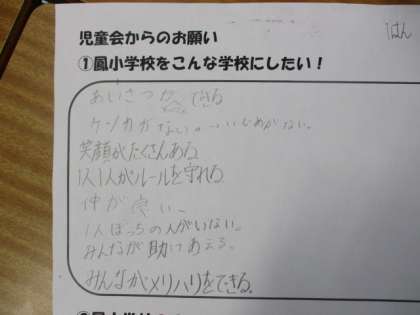 児童会からのお願い
1はん
①鳳小学校をこんな学校にしたい！
あいさつが できる
ケンカがない。いじめがない。
笑顔がたくさんある
1人1人がルールを守れる
仲が良い、
1人ぼっちの人がいない。
みんなが助けあえる。
みんながメリハリをできる。